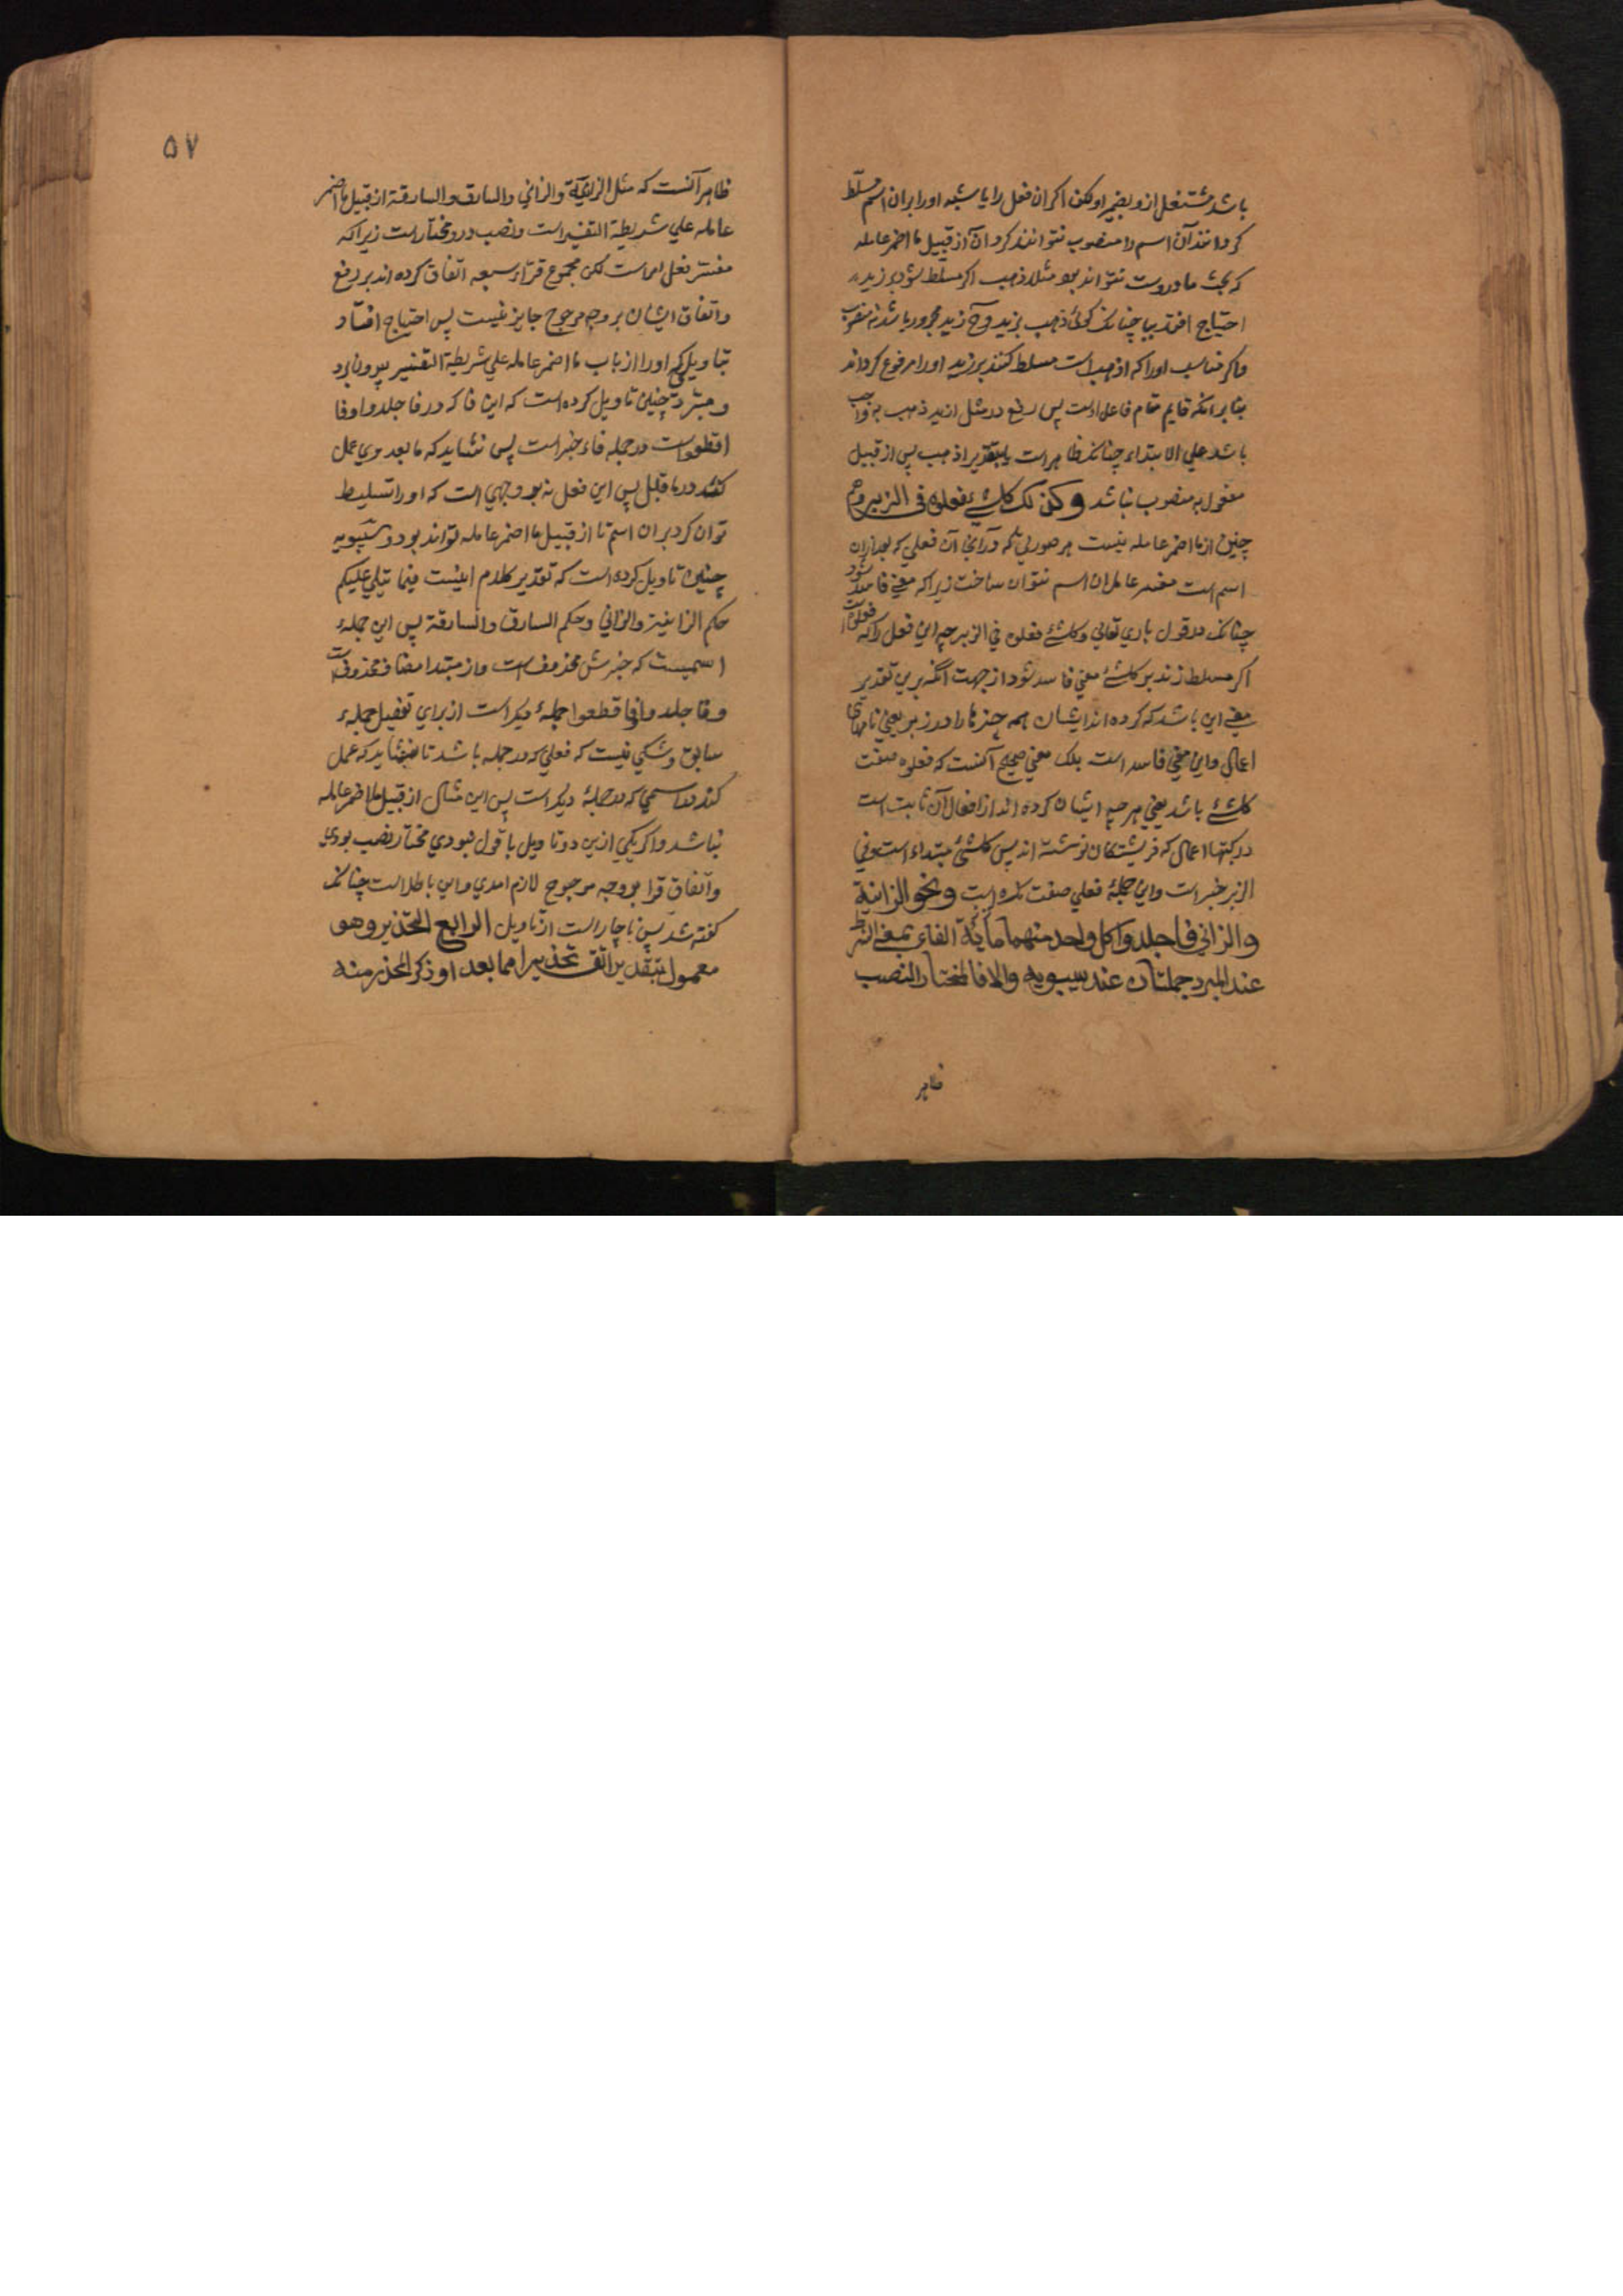 باشد مشتغل ازو بضمیر او لکن اکر ان فعل را یا شبه او را بران اسم مسلّط
کردانند آن اسم را منصوب نتوانند کرد و آن از قبیل ما اضمر عامله
که بحث ما دروست نتواند بود مثلا ذهب اکر مسلّط شود بر زید به
احتیاج افتد ببا چنانک کوئی ذهب بزید و آنکاه زید مجرور باشد نه منصوب
و اکر مناسب او را که اذهب است مسلط کنند بر زید او را مرفوع کرداند
بنا برانکه قایم مقام فاعل است پس رفع در مثل ازید ذهب به واجب
باشد علی الابتداء چنانک ظاهر است یا بتقدیر اذهب پس از قبیل
مفعول به منصوب نباشد وکذلک کل شئ فعلوه فی الزبر و هم
چنین از ما اضمر عامله نیست هر صورتی که درآن آن فعلی که بعد ازان
اسم است مفسر عامل ان اسم نتوان ساخت زیرا که معنی فاسد شود
چنانک در قول باری تعالی و کل شئ فعلوه فی الزبر چه این فعل را که فعلوه است
اکر مسلط زند بر کل شئ معنی فاسد شود از جهت آنکه برین تقدیر
معنی این باشد که کرده اند ایشان همه چیزها را در زبر یعنی نامهای
اعمال و این معنی فاسد است بلک معنی صحیح آنست که فعلوه صفت
کل شئ باشد یعنی هر چه ایشان کرده اند از افعال آن ثابت است
در کتبها اعمال که فریشتکان نوشته اند پس کل شئ مبتداء است و فی
الزبر خبر است و این جملهٔ فعلی صفت نکره است ونحو الزانیة
والزانی فاجلدوا کل واحد منهما مایة الفاء بمعنی الشرط
عند المبرد جملتان عند سیبویه والا فالمختار النصب
ظاهر
۵۷
ظاهر آنست که مثل الزانیة والزانی والسارق والسارقة از قبیل ما اضمر
عامله علی شریطة التفسیر است و نصب درو مختار است زیرا که
مفسر فعل امر است لکن مجموع قرّاء سبعه اتّفاق کرده اند بر رفع
و اتفاق ایشان بر وجه مرجوح جایز نیست پس احتیاج افتاد
بتاویلی که او را از باب ما اضمر عامله علی شریطة التفسیر بیرون برد
و مبرّد چنین تاویل کرده است که این فا که در فاجلدوا و فا
اقطعواست در جمله فاء خبر است پس نشاید که ما بعد وی عمل
کند در ما قبل پس این فعل نه بر وجهی است که او را تسلیط
توان کرد بران اسم تا از قبیل ما اضمر عامله تواند بود و سیبویه
چنین تاویل کرده است که تقدیر کلام اینست فیما یتلی علیکم
حکم الزانیة والزانی و حکم السارق والسارقة پس این جملهٔ
اسمیست که خبرش محذوف است و از مبتدا مضاف محذوف است
و فاجلدوا و فاقطعوا جملهٔ دیکر است از برای تفصیل جملهٔ
سابق و شکی نیست که فعلی که در جمله باشد نشاید که عمل
کند در اسمی که در جملهٔ دیکر است پس این مثال از قبیل ما اضمر عامله
نباشد و اکر یکی ازین دو تاویل با قول نبودی مختار نصب بودی
و اتفاق قرا بر وجه مرجوح لازم امدی و این باطل است چنانک
کفته شد پس ناچار است از تاویل الرابع التحذیر وهو
معمول بتقدیر اتق تحذیرا مما بعده او ذکر المحذر منه